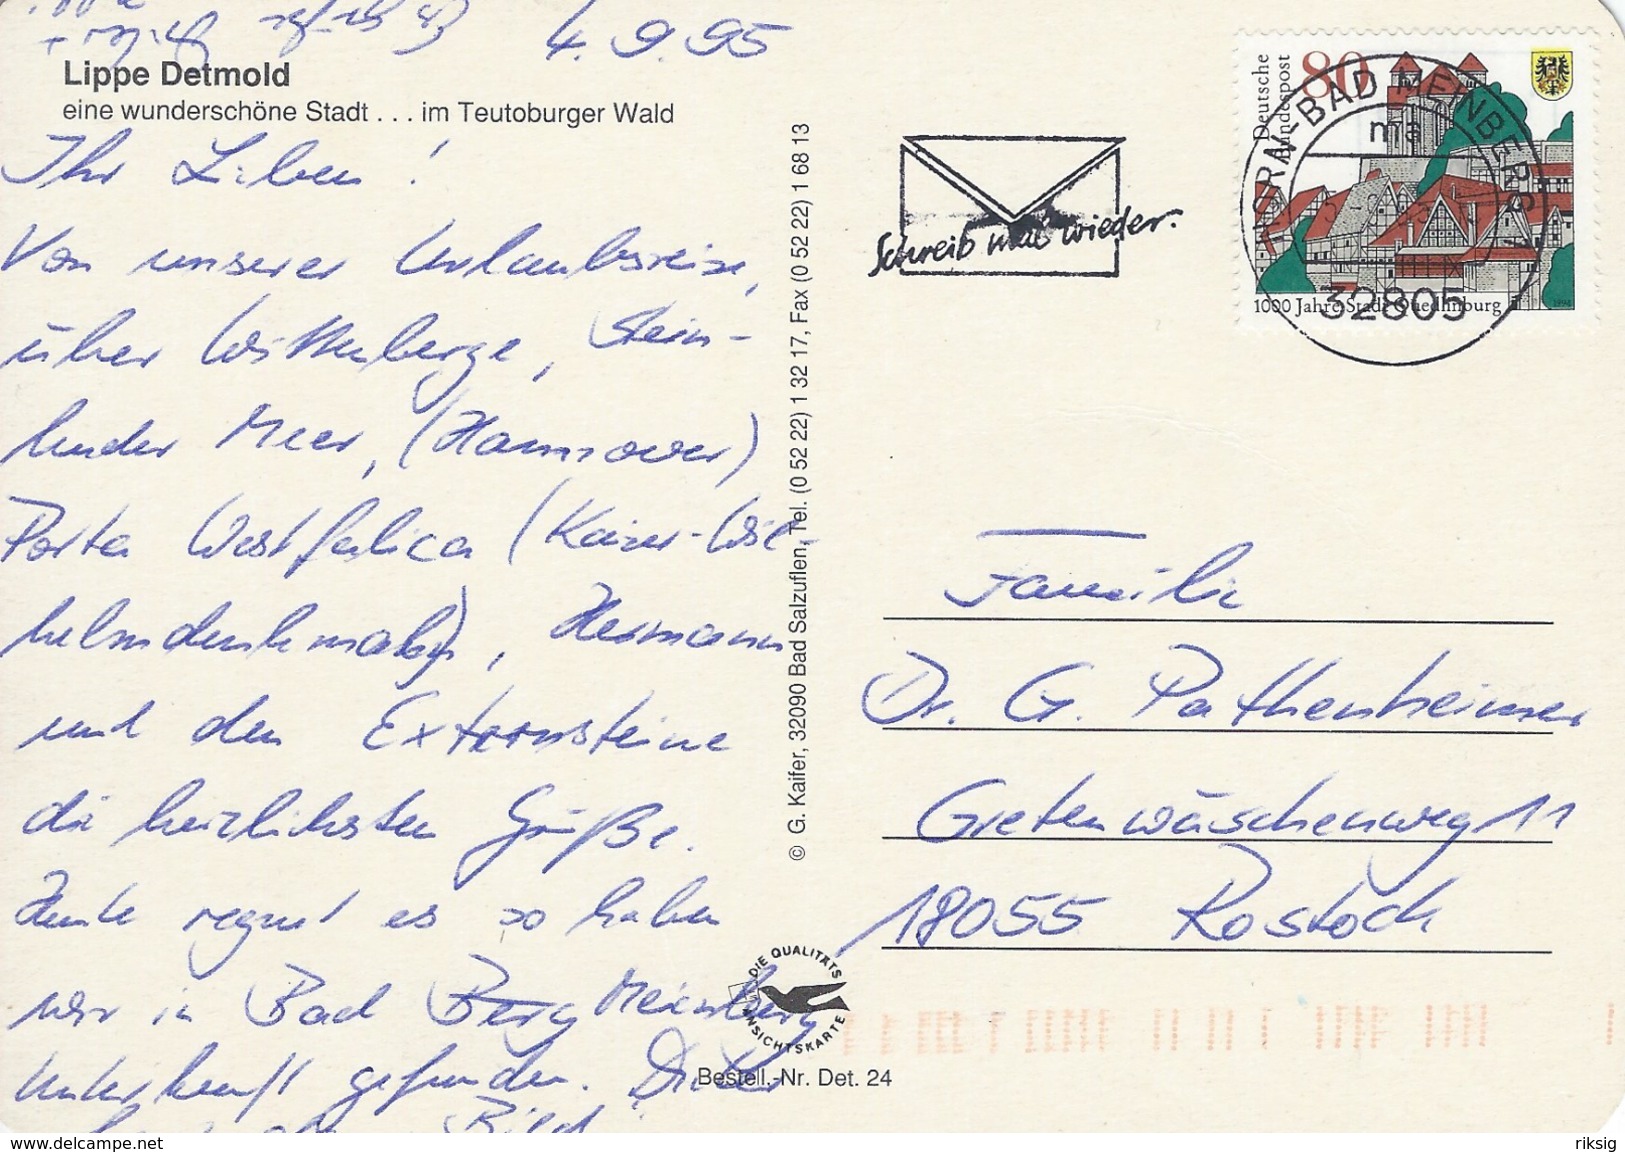 4.9.95
Lippe Detmold
eine wunderschöne Stadt . . . im Teutoburger Wald
Ihr Lieben!
Von unserer Urlaubsreise,
über Wittenberge, Stein-
huder Meer, (Hannover)
Porta Westfalica (Kaiser-Wil-
helmdenkmal), Hermann
und den Externsteine
die herzlichsten Grüße.
Heute regnet es so haben
wir in Bad Berg Meinberg
Unterkunft gefunden. Dieter
Bild
© G. Kaifer, 32090 Bad Salzuflen, Tel. (0 52 22) 1 32 17, Fax (0 52 22) 1 68 13
DIE QUALITÄTS
ANSICHTSKARTE
Bestell.-Nr. Det. 24
Schreib mal wieder.
Deutsche
Bundespost
80
1000 Jahre Stadt Quedlinburg
1994
HORN-BAD MEINBERG 1
ma
32805
Familie
Dr. G. Pathenheimer
Gretenwäschenweg 11
18055 Rostock
www.delcampe.net
riksig